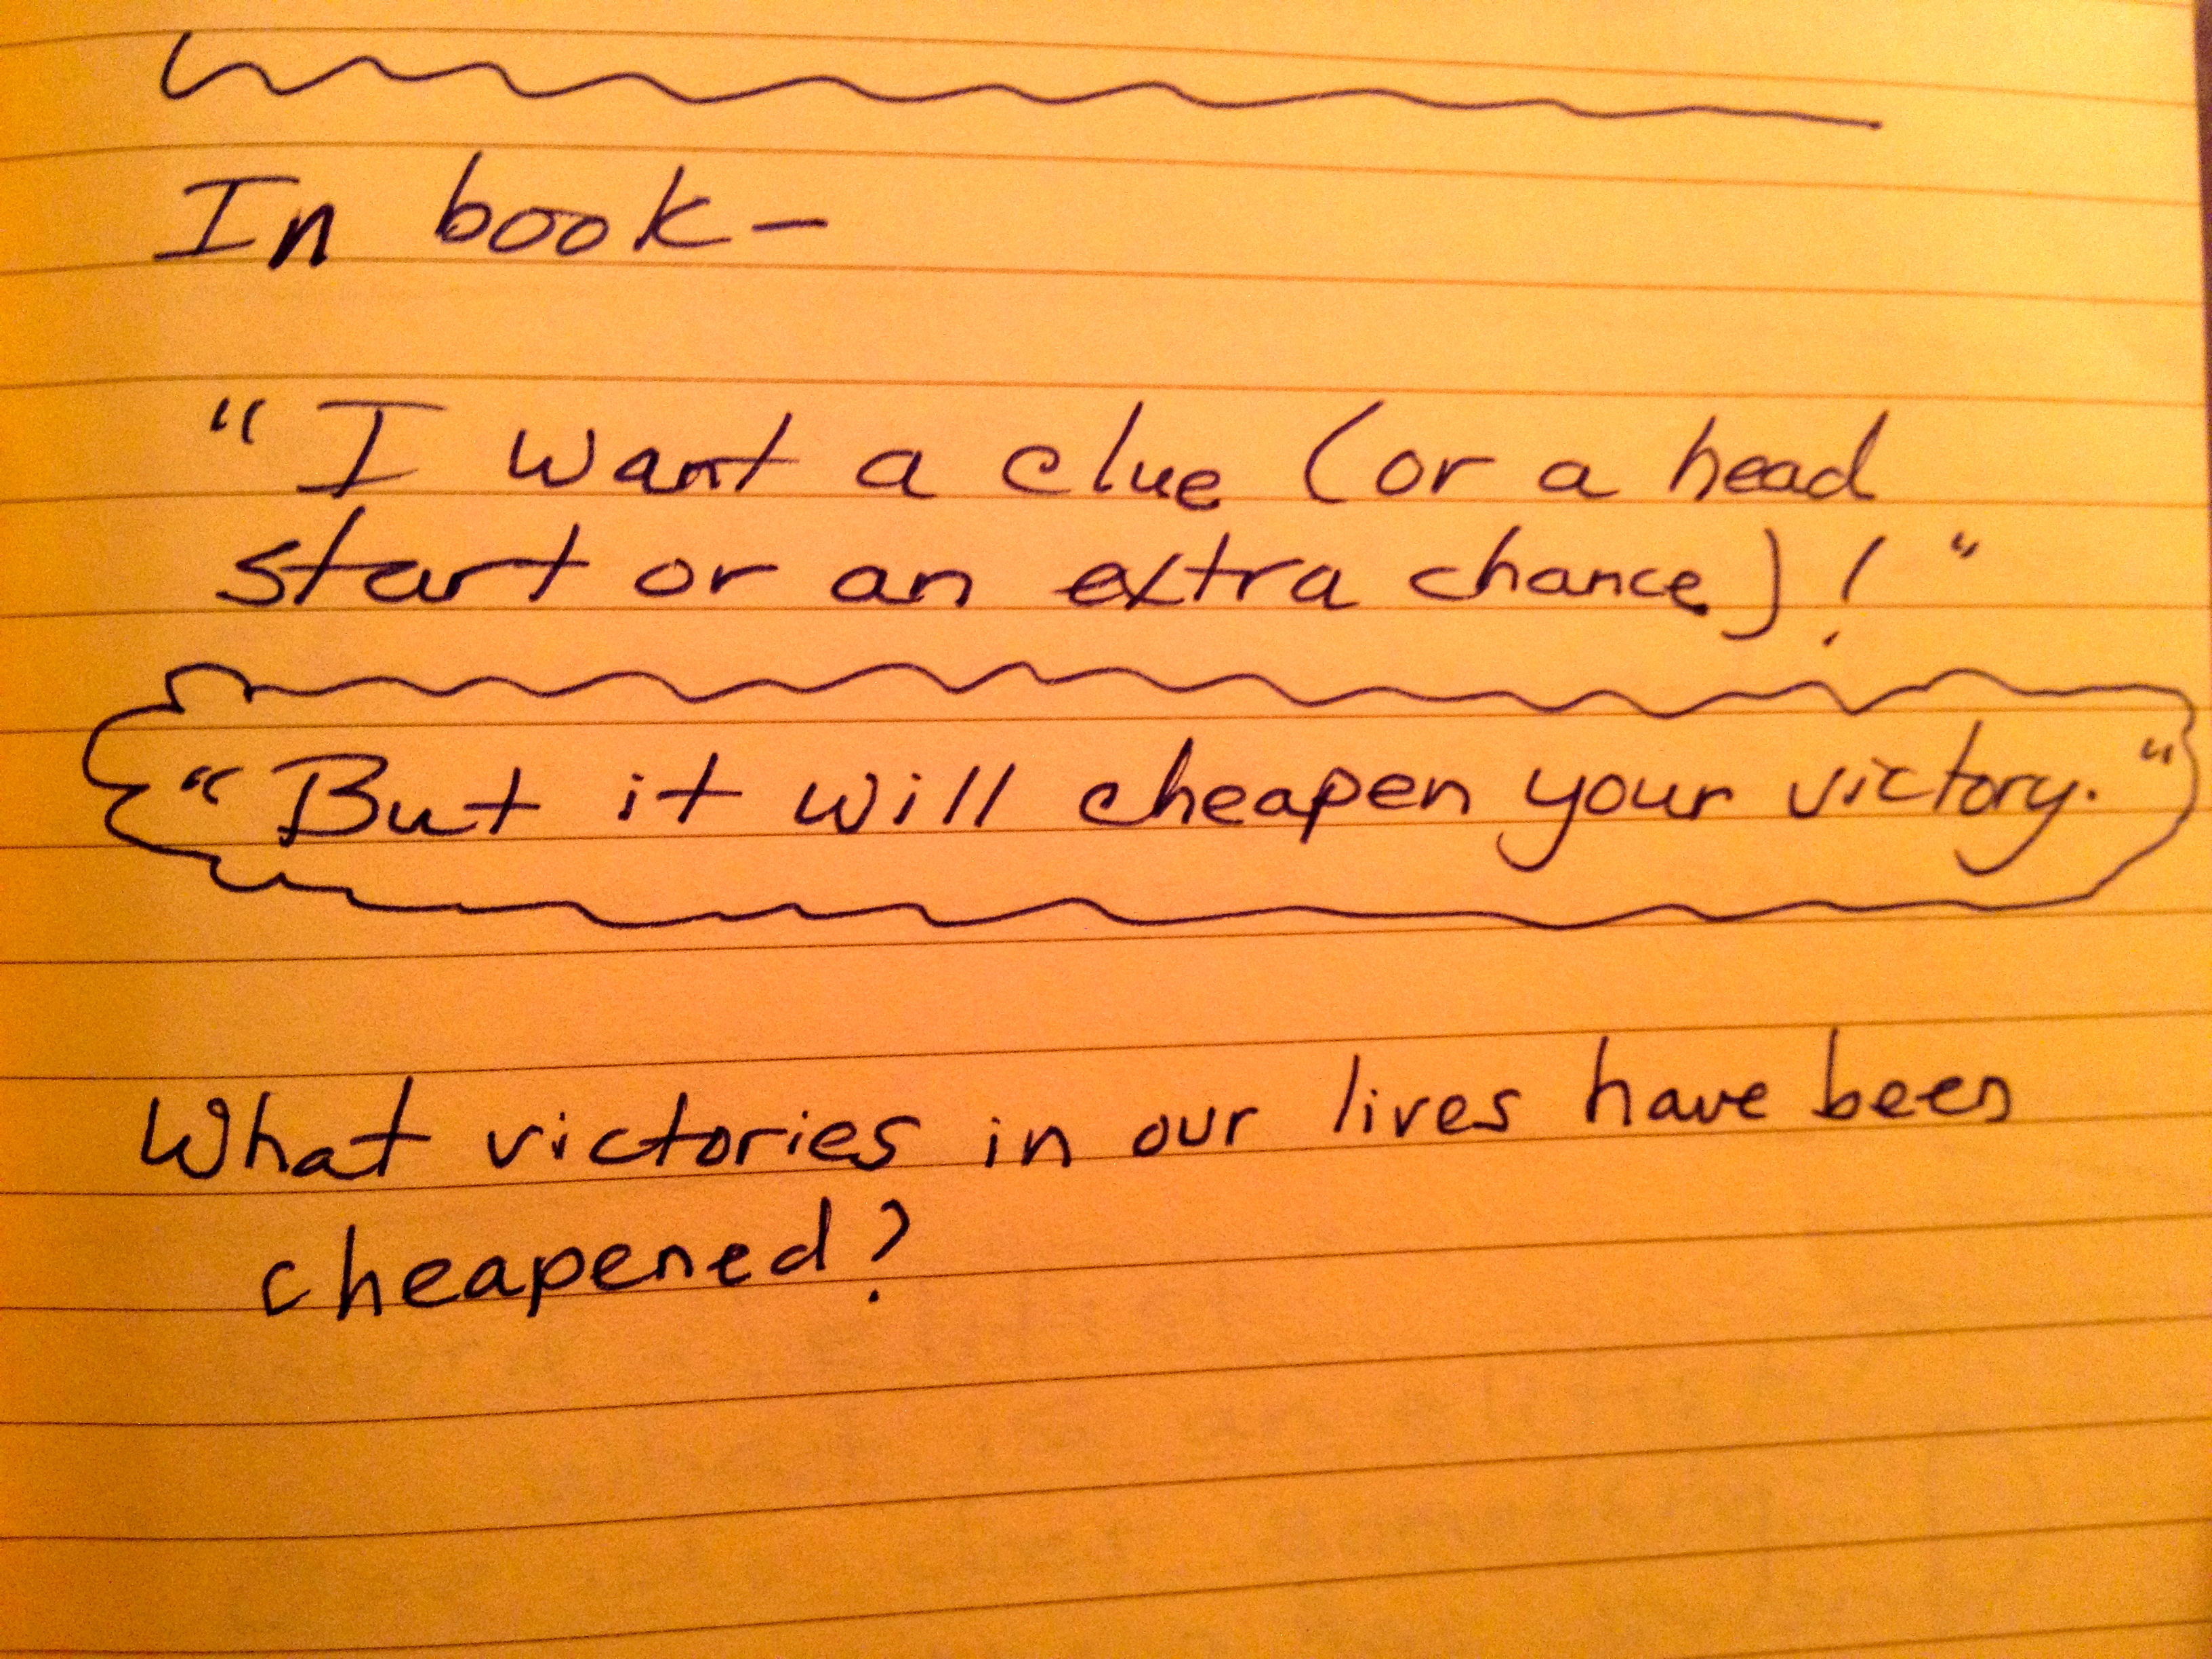 In book-
"I want a clue (or a head
start or an extra chance)!"
"But it will cheapen your victory."
What victories in our lives have been
cheapened?